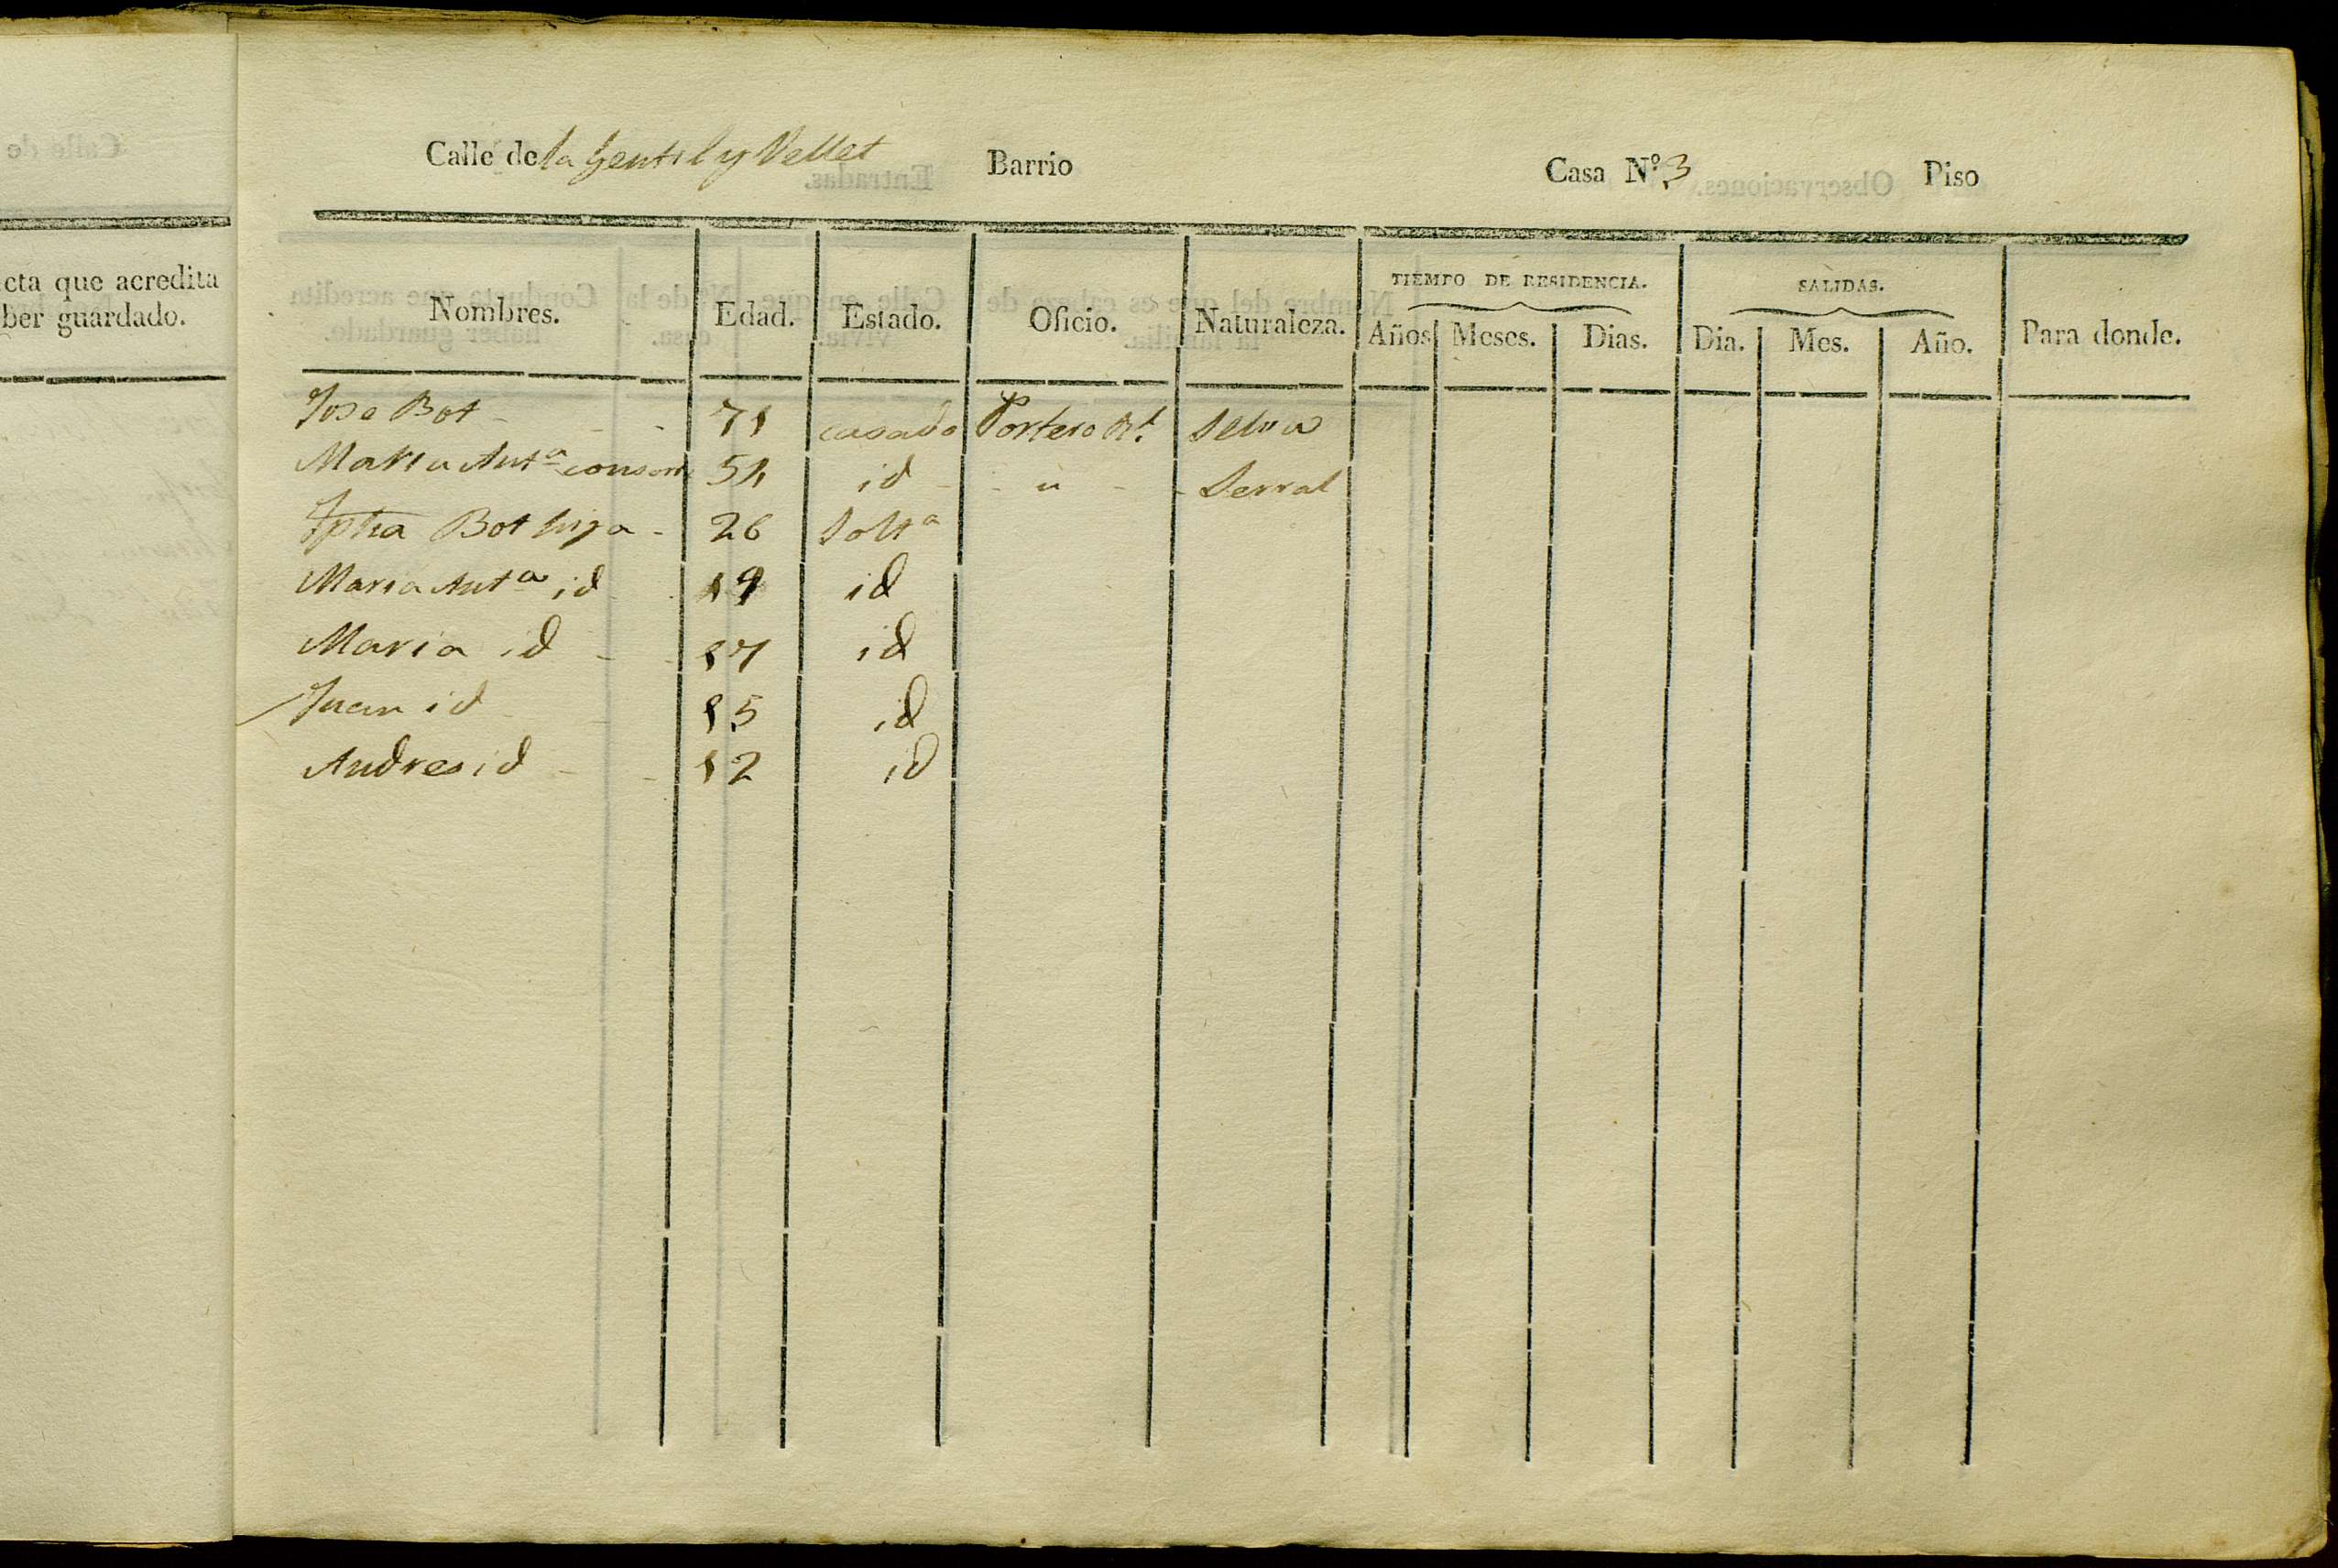 cta que acredita
ber guardado.
Calle de la Gentil y Vellet Barrio Casa N.º 3 Piso
Nombres. Edad. Estado. Oficio. Naturaleza. TIEMPO DE RESIDENCIA. Años Meses. Dias. SALIDAS. Dia. Mes. Año. Para donde.
Jose Bot - - 71 casado Portero Rl. Selva
Maria Anta. consorte 54 id - - " - - Serral
Jpha Bot hija - 26 Solta
Maria Anta id - - 19 id
Maria id - - 17 id
Juan id - - 15 id
Andres id - - 12 id